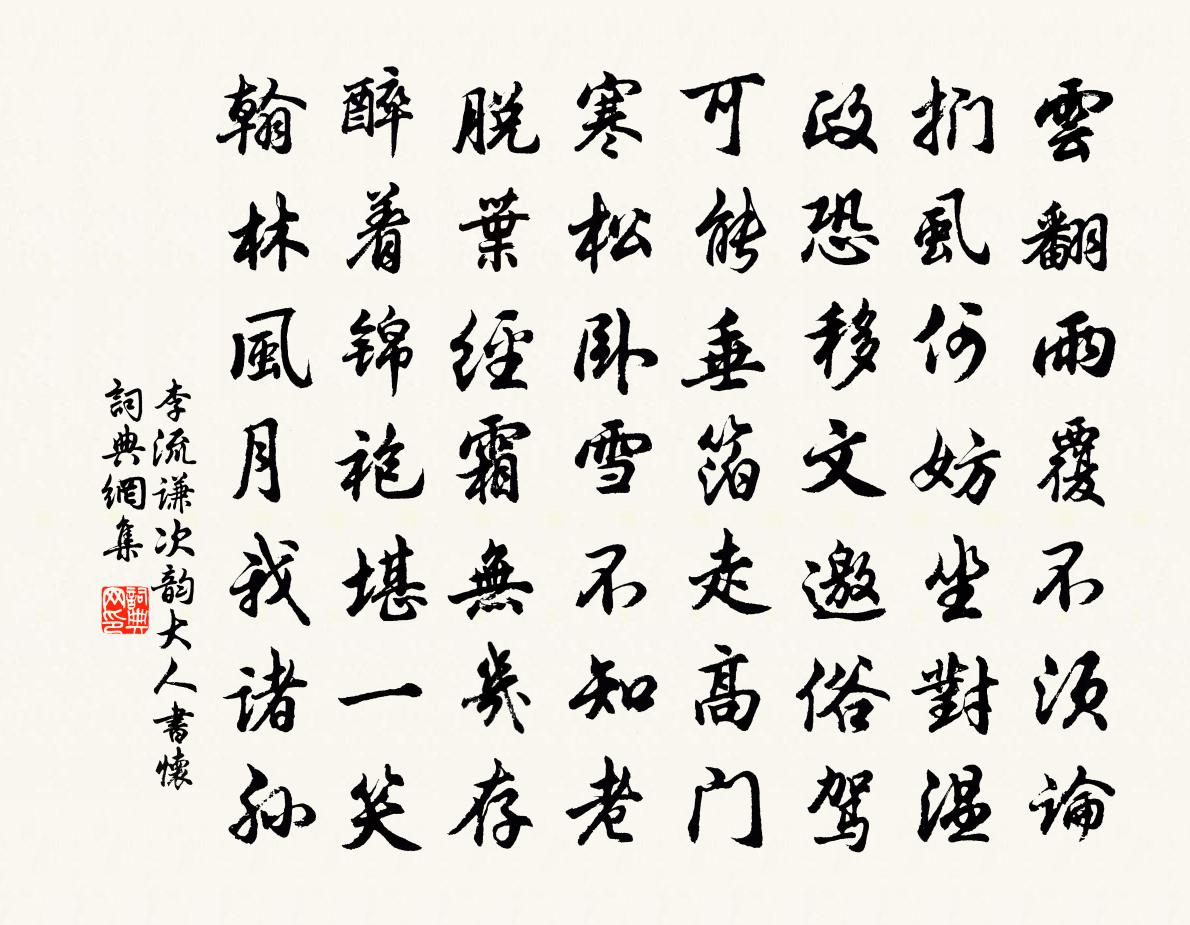 雲翻雨覆不須論
捫虱何妨坐對溫
政恐移文邀俗駕
可能垂箔走高門
寒松卧雪不知老
脱葉經霜無幾存
醉着锦袍堪一笑
翰林風月我诸孫
李流谦次韵大人書懷
詞典網集
詞典网印